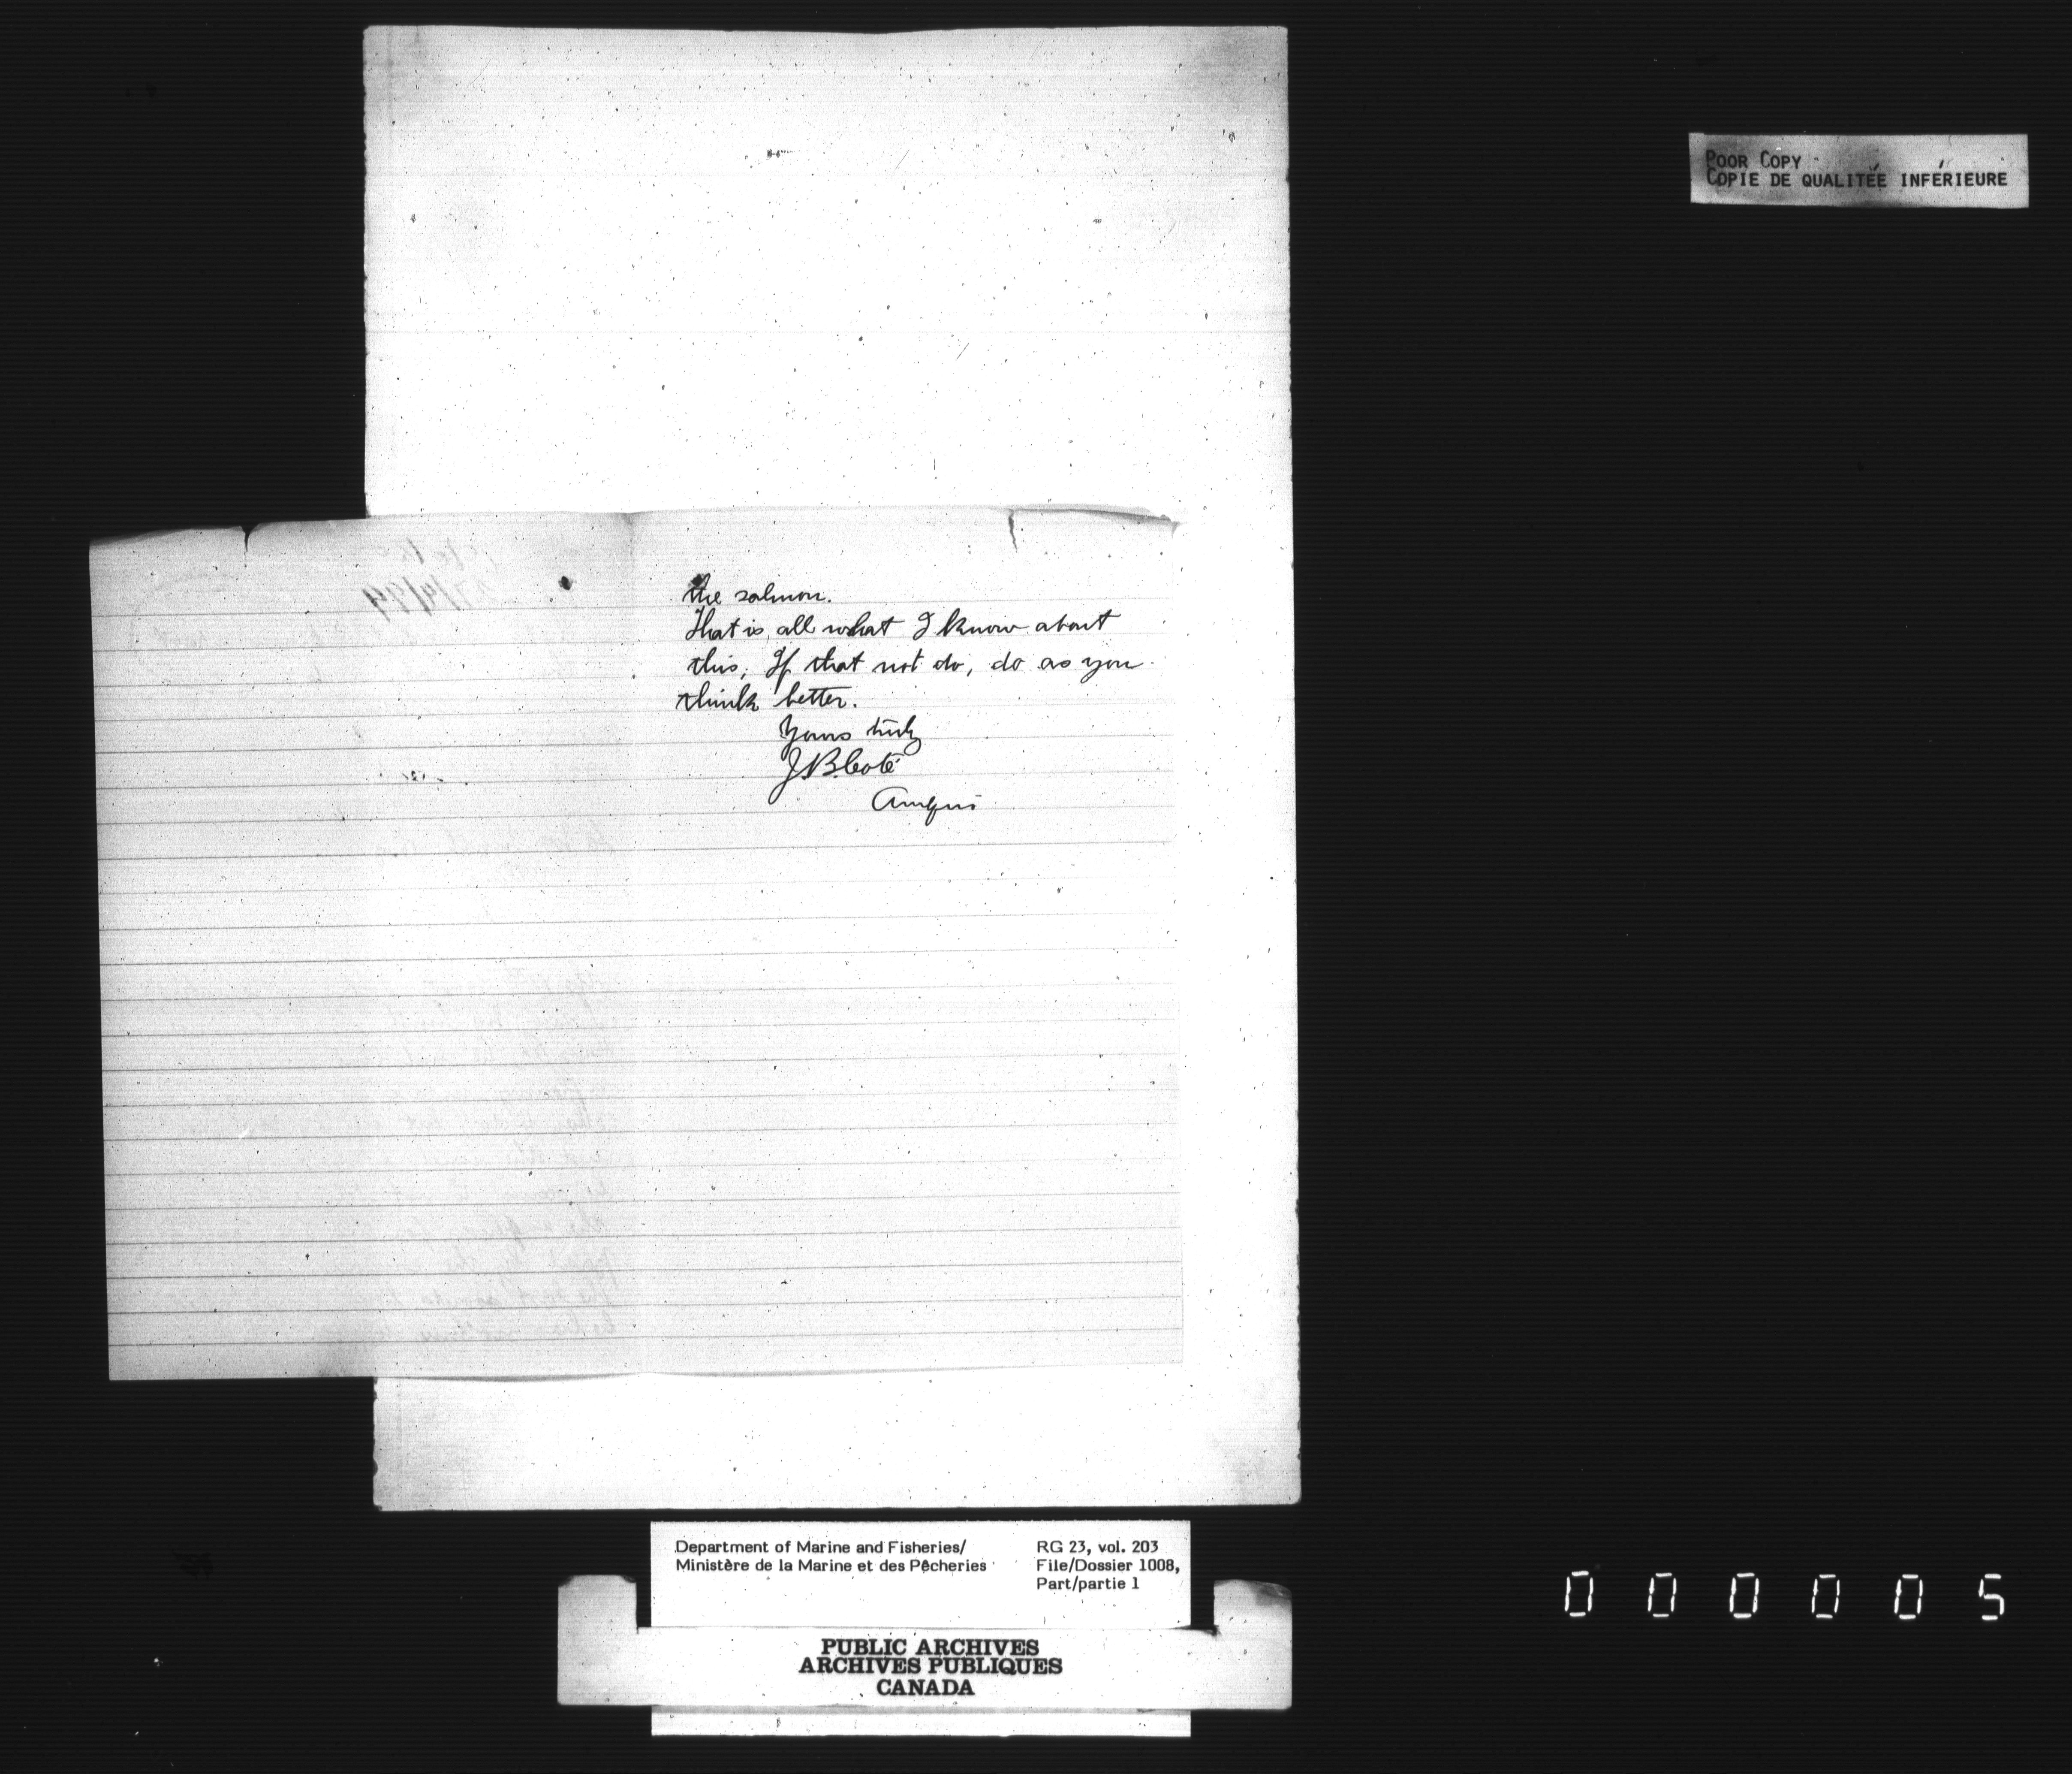 POOR COPY
COPIE DE QUALITÉE INFÉRIEURE
the salmon.
That is all what I know about
this, If that not do, do as you
think better.
Yours truly
J.B. Coté
Amqui
Department of Marine and Fisheries/
Ministère de la Marine et des Pêcheries
RG 23, vol. 203
File/Dossier 1008,
Part/partie 1
PUBLIC ARCHIVES
ARCHIVES PUBLIQUES
CANADA
000005